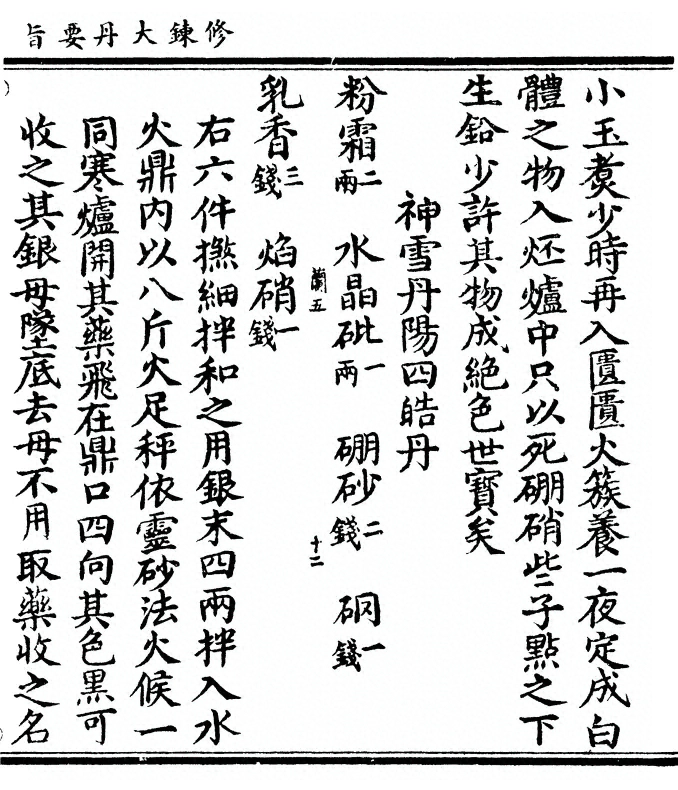 修鍊大丹要旨
小玉煑少時再入匱匱火簇養一夜定成白
體之物入炋爐中只以死硼硝些二子點之下
生鉛少許其物成絕色世寶矣
神雪丹陽四皓丹
粉霜二兩　水晶砒一兩　硼砂二錢　硇一錢
蘭五　十二
乳香三錢　焰硝一錢
右六件撚細拌和之用銀末四兩拌入水
火鼎內以八斤火足秤依靈砂法火候一
同寒爐開其藥飛在鼎口四向其色黑可
收之其銀母墜底去母不用取藥收之名